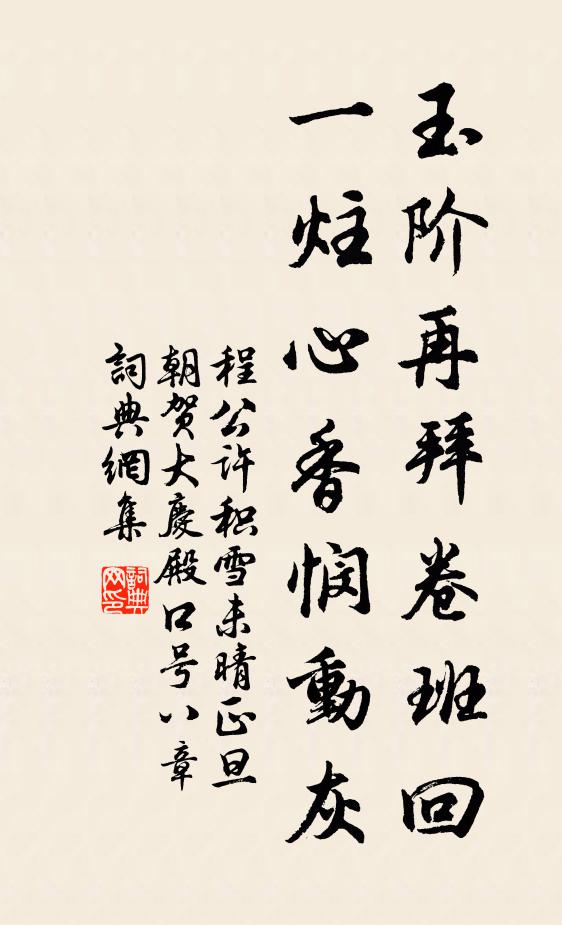 玉阶再拜卷班回
一炷心香悯動灰
程公许积雪未晴正旦
朝贺大慶殿口号八章
詞典網集
詞典網印